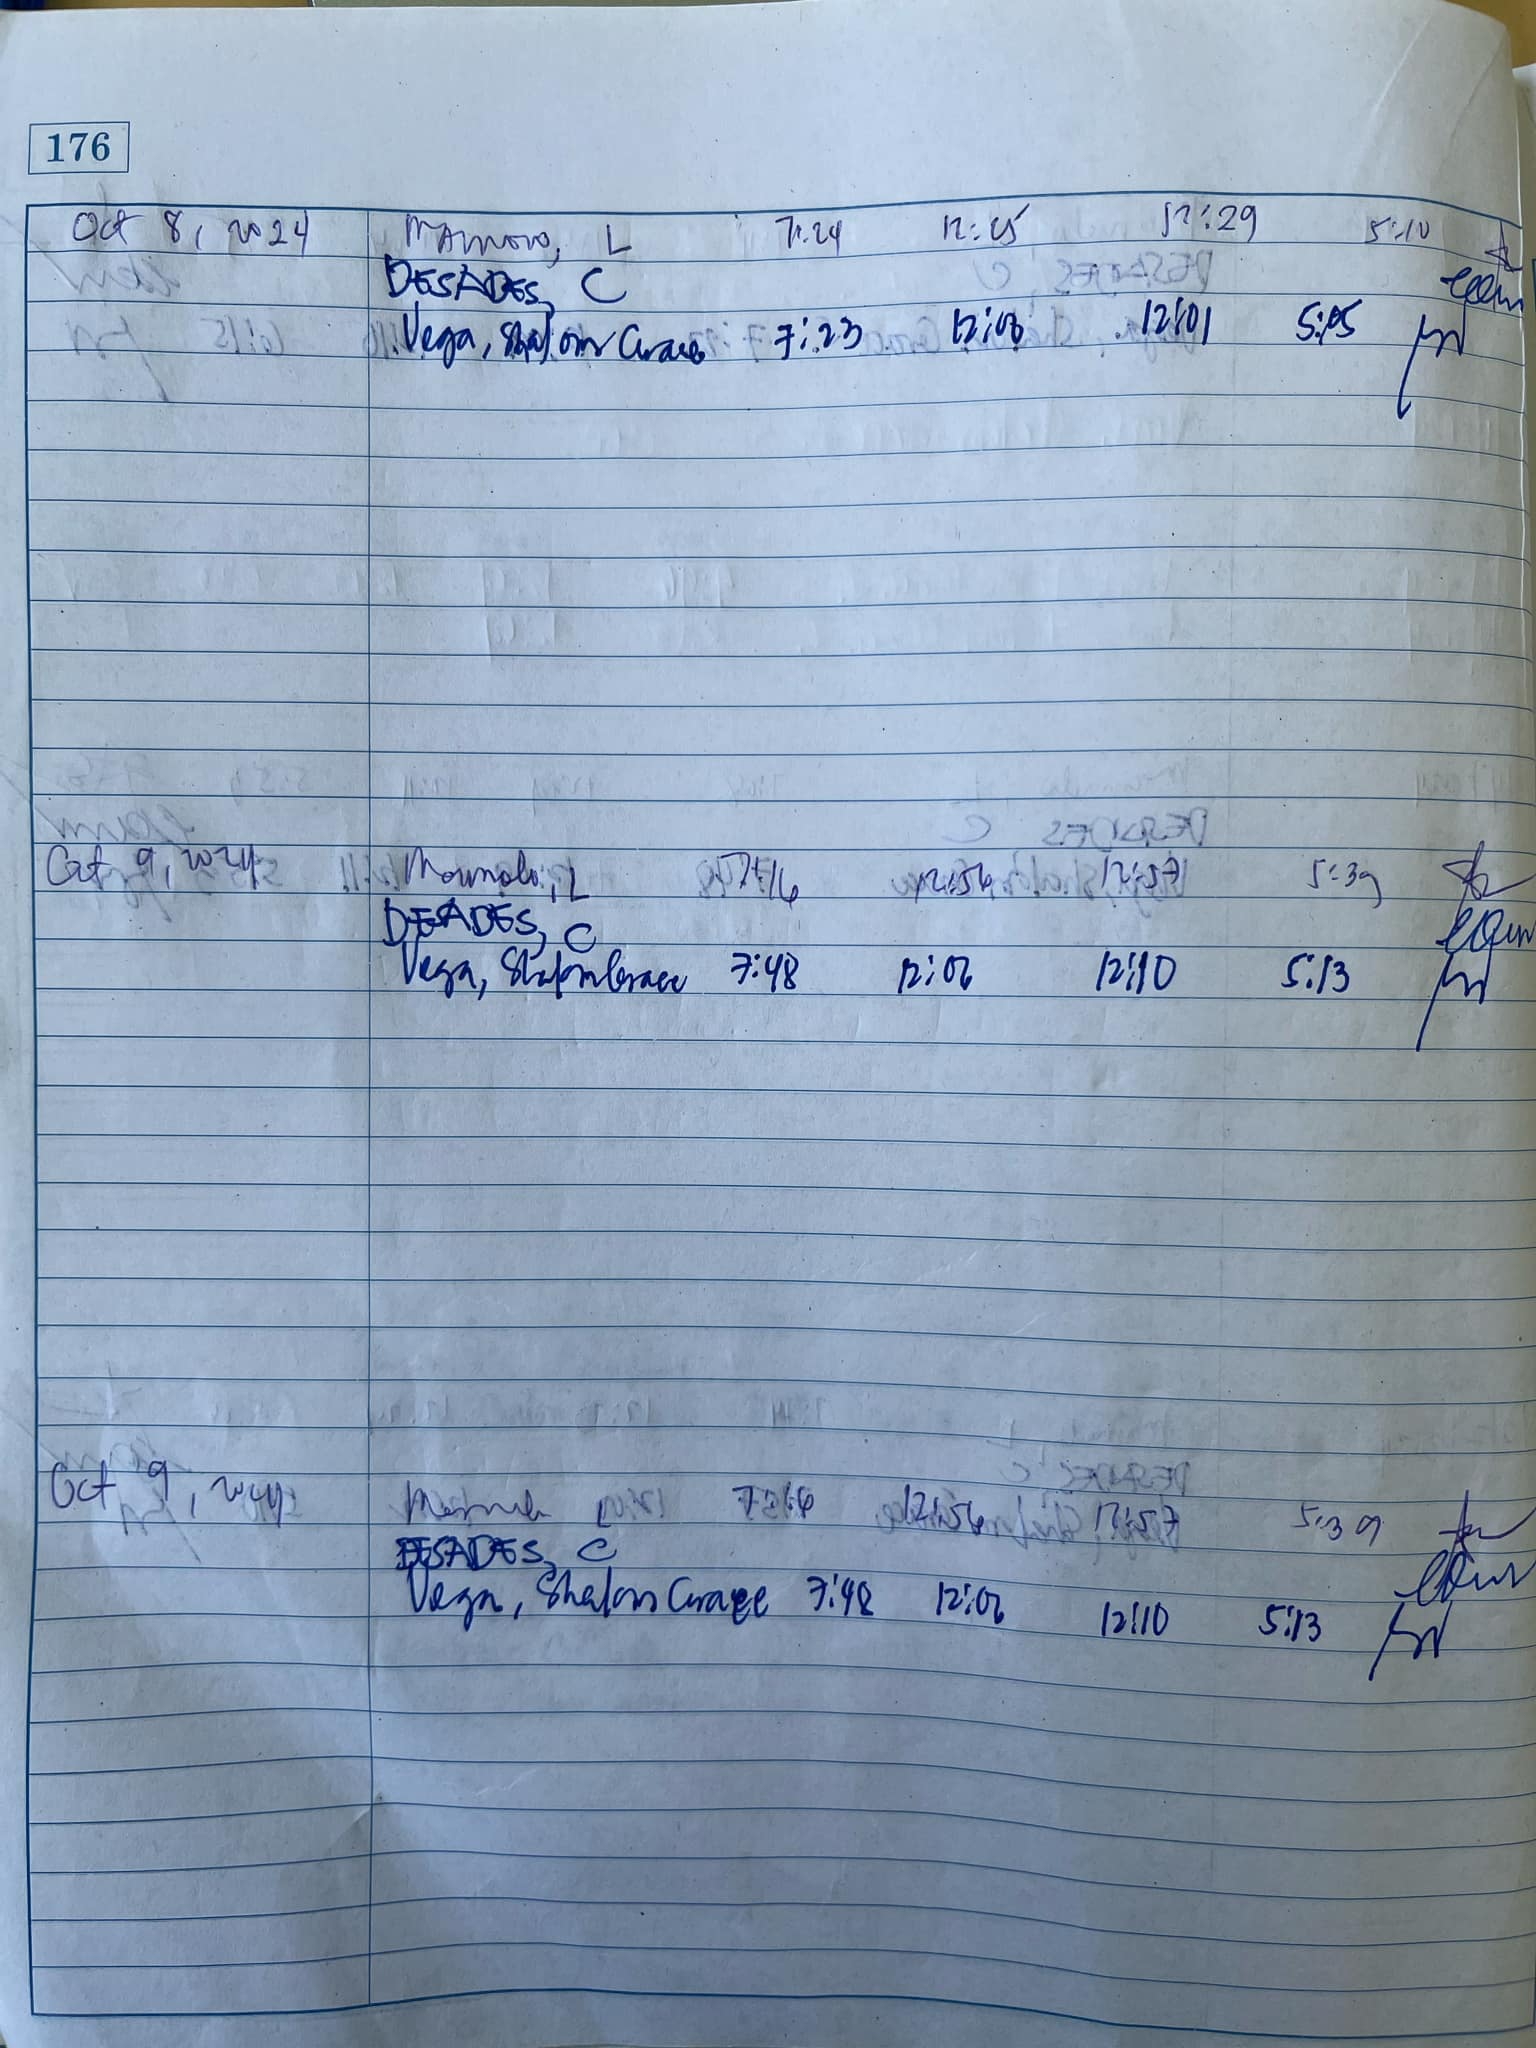 176
Oct 8, 2024 L 7:24 12:25 12:29 5:10
DESADES, C
Vega, Shalom Grace 7:23 12:01 5:05
Oct 9, 2024 L 7:16 12:56 12:57 5:39
DESADES, C
Vega, Shalom Grace 7:48 12:06 12:10 5:13
Oct 9, 2024 L 7:16 12:56 12:57 5:39
DESADES, C
Vega, Shalom Grace 7:48 12:06 12:10 5:13